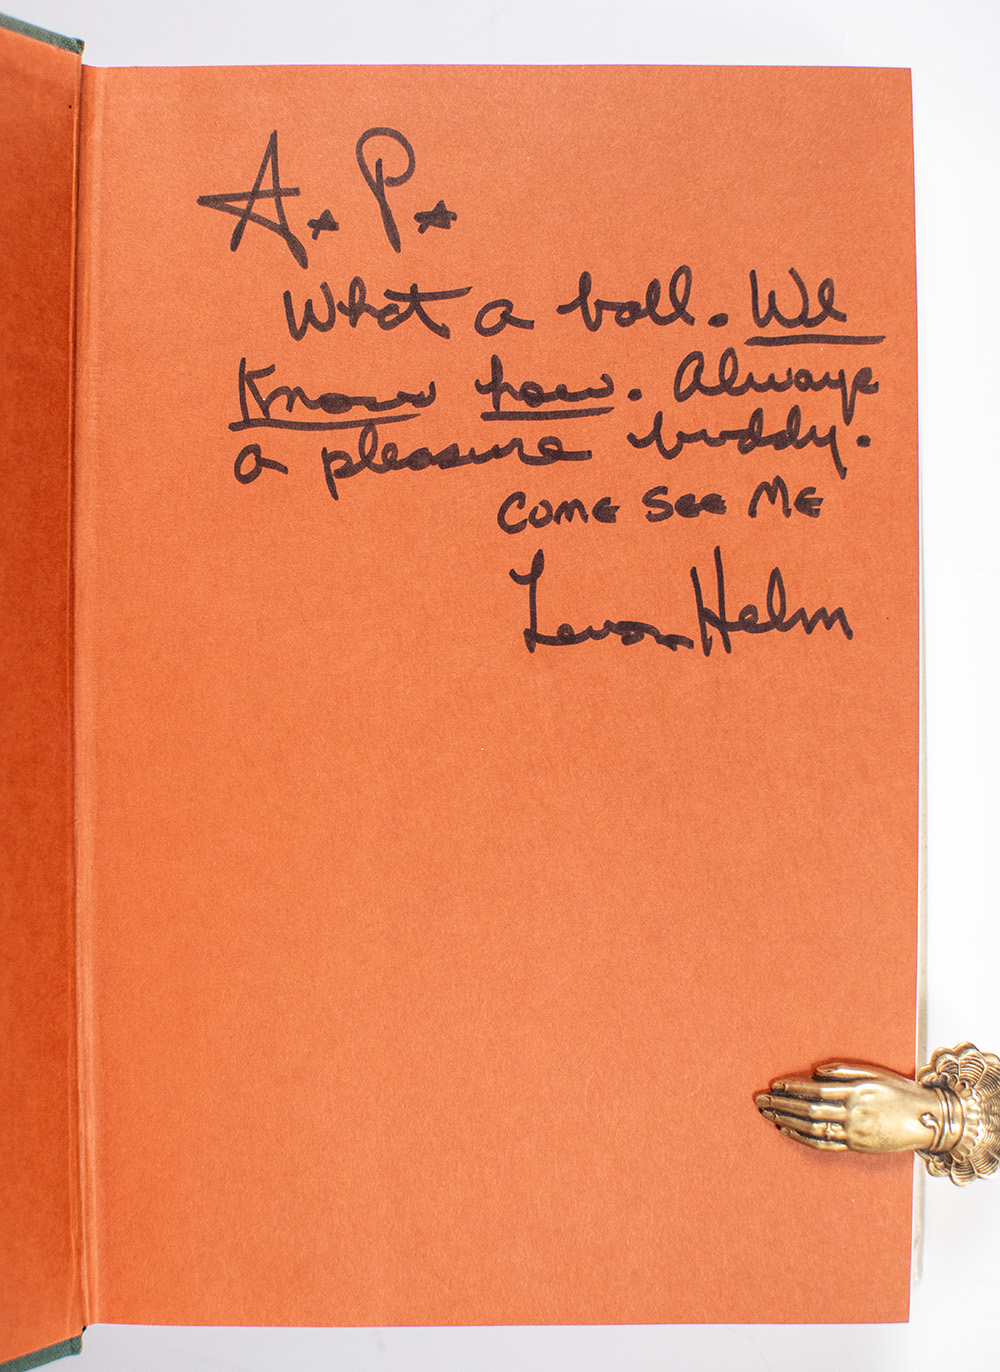 A★ P★
What a ball. We
Know how. Always
a pleasure buddy.
COME SEE ME
Levon Helm